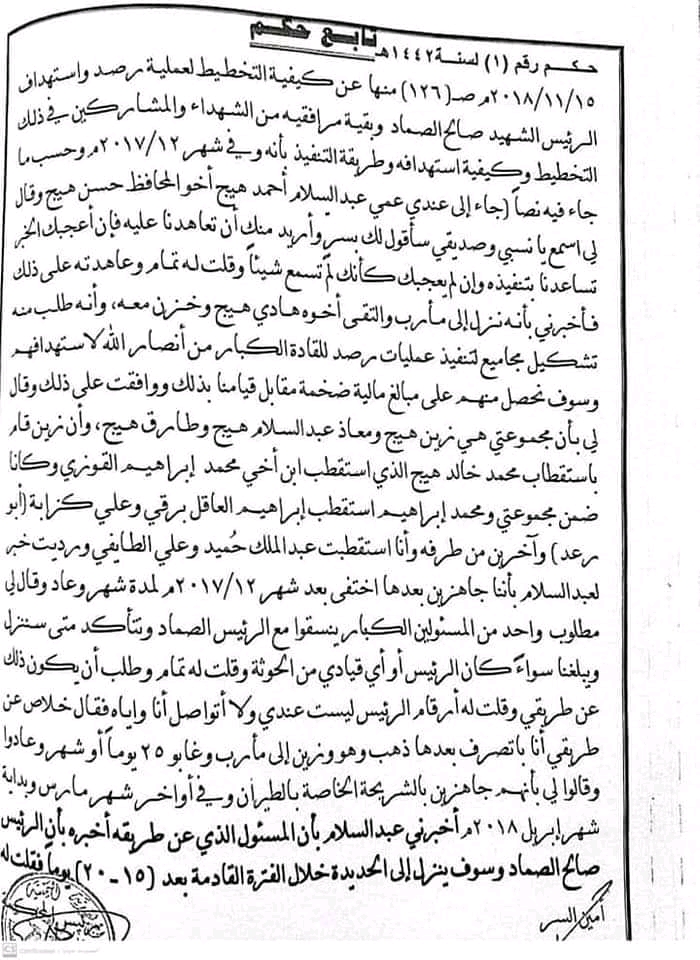 تابع حكم
حكم رقم (١) لسنة ١٤٤٢هـ
٢٠١٨/١١/١٥م صـ(١٢٦) منها عن كيفية التخطيط لعملية رصد واستهداف
الرئيس الشهيد صالح الصماد وبقية مرافقيه من الشهداء والمشاركين في ذلك
التخطيط وكيفية استهدافه وطريقة التنفيذ بأنه وفي شهر ٢٠١٧/١٢م وحسب ما
جاء فيه نصاً (جاء إلى عندي عمي عبدالسلام أحمد هيج أخو المحافظ حسن هيج وقال
لي اسمع يا نسبي وصديقي سأقول لك بسر وأريد منك أن تعاهدنا عليه فإن أعجبك الخبر
تساعدنا بتنفيذه وإن لم يعجبك كأنك لم تسمع شيئاً وقلت له تمام وعاهدته على ذلك
فأخبرني بأنه نزل إلى مأرب والتقى أخوه هادي هيج وخزن معه، وأنه طلب منه
تشكيل مجاميع لتنفيذ عمليات رصد للقادة الكبار من أنصار الله لاستهدافهم
وسوف نحصل منهم على مبالغ مالية ضخمة مقابل قيامنا بذلك ووافقت على ذلك وقال
لي بأن مجموعتي هي زين هيج ومعاذ عبدالسلام هيج وطارق هيج، وأن زين قام
باستقطاب محمد خالد هيج الذي استقطب ابن أخي محمد إبراهيم القوزي وكانا
ضمن مجموعتي ومحمد إبراهيم استقطب إبراهيم العاقل برقي وعلي كزابة (أبو
رعد) وآخرين من طرفه وأنا استقطبت عبدالملك حُميد وعلي الطايفي ورديت خبر
لعبدالسلام بأننا جاهزين بعدها اختفى بعد شهر ٢٠١٧/١٢م لمدة شهر وعاد وقال لي
مطلوب واحد من المسئولين الكبار ينسقوا مع الرئيس الصماد ونتأكد متى سننزل
ويبلغنا سواءً كان الرئيس أو أي قيادي من الحوثة وقلت له تمام وطلب أن يكون ذلك
عن طريقي وقلت له أرقام الرئيس ليست عندي ولا أتواصل أنا وإياه فقال خلاص عن
طريقي أنا باتصرف بعدها ذهب وهو وزين إلى مأرب وغابو ٢٥ يوماً أو شهر وعادوا
وقالوا لي بأنهم جاهزين بالشريحة الخاصة بالطيران وفي أواخر شهر مارس وبداية
شهر إبريل ٢٠١٨م أخبرني عبدالسلام بأن المسئول الذي عن طريقه أخبره بأن الرئيس
صالح الصماد وسوف ينزل إلى الحديدة خلال الفترة القادمة بعد (١٥-٢٠) يوماً فقلت له
أمين السر